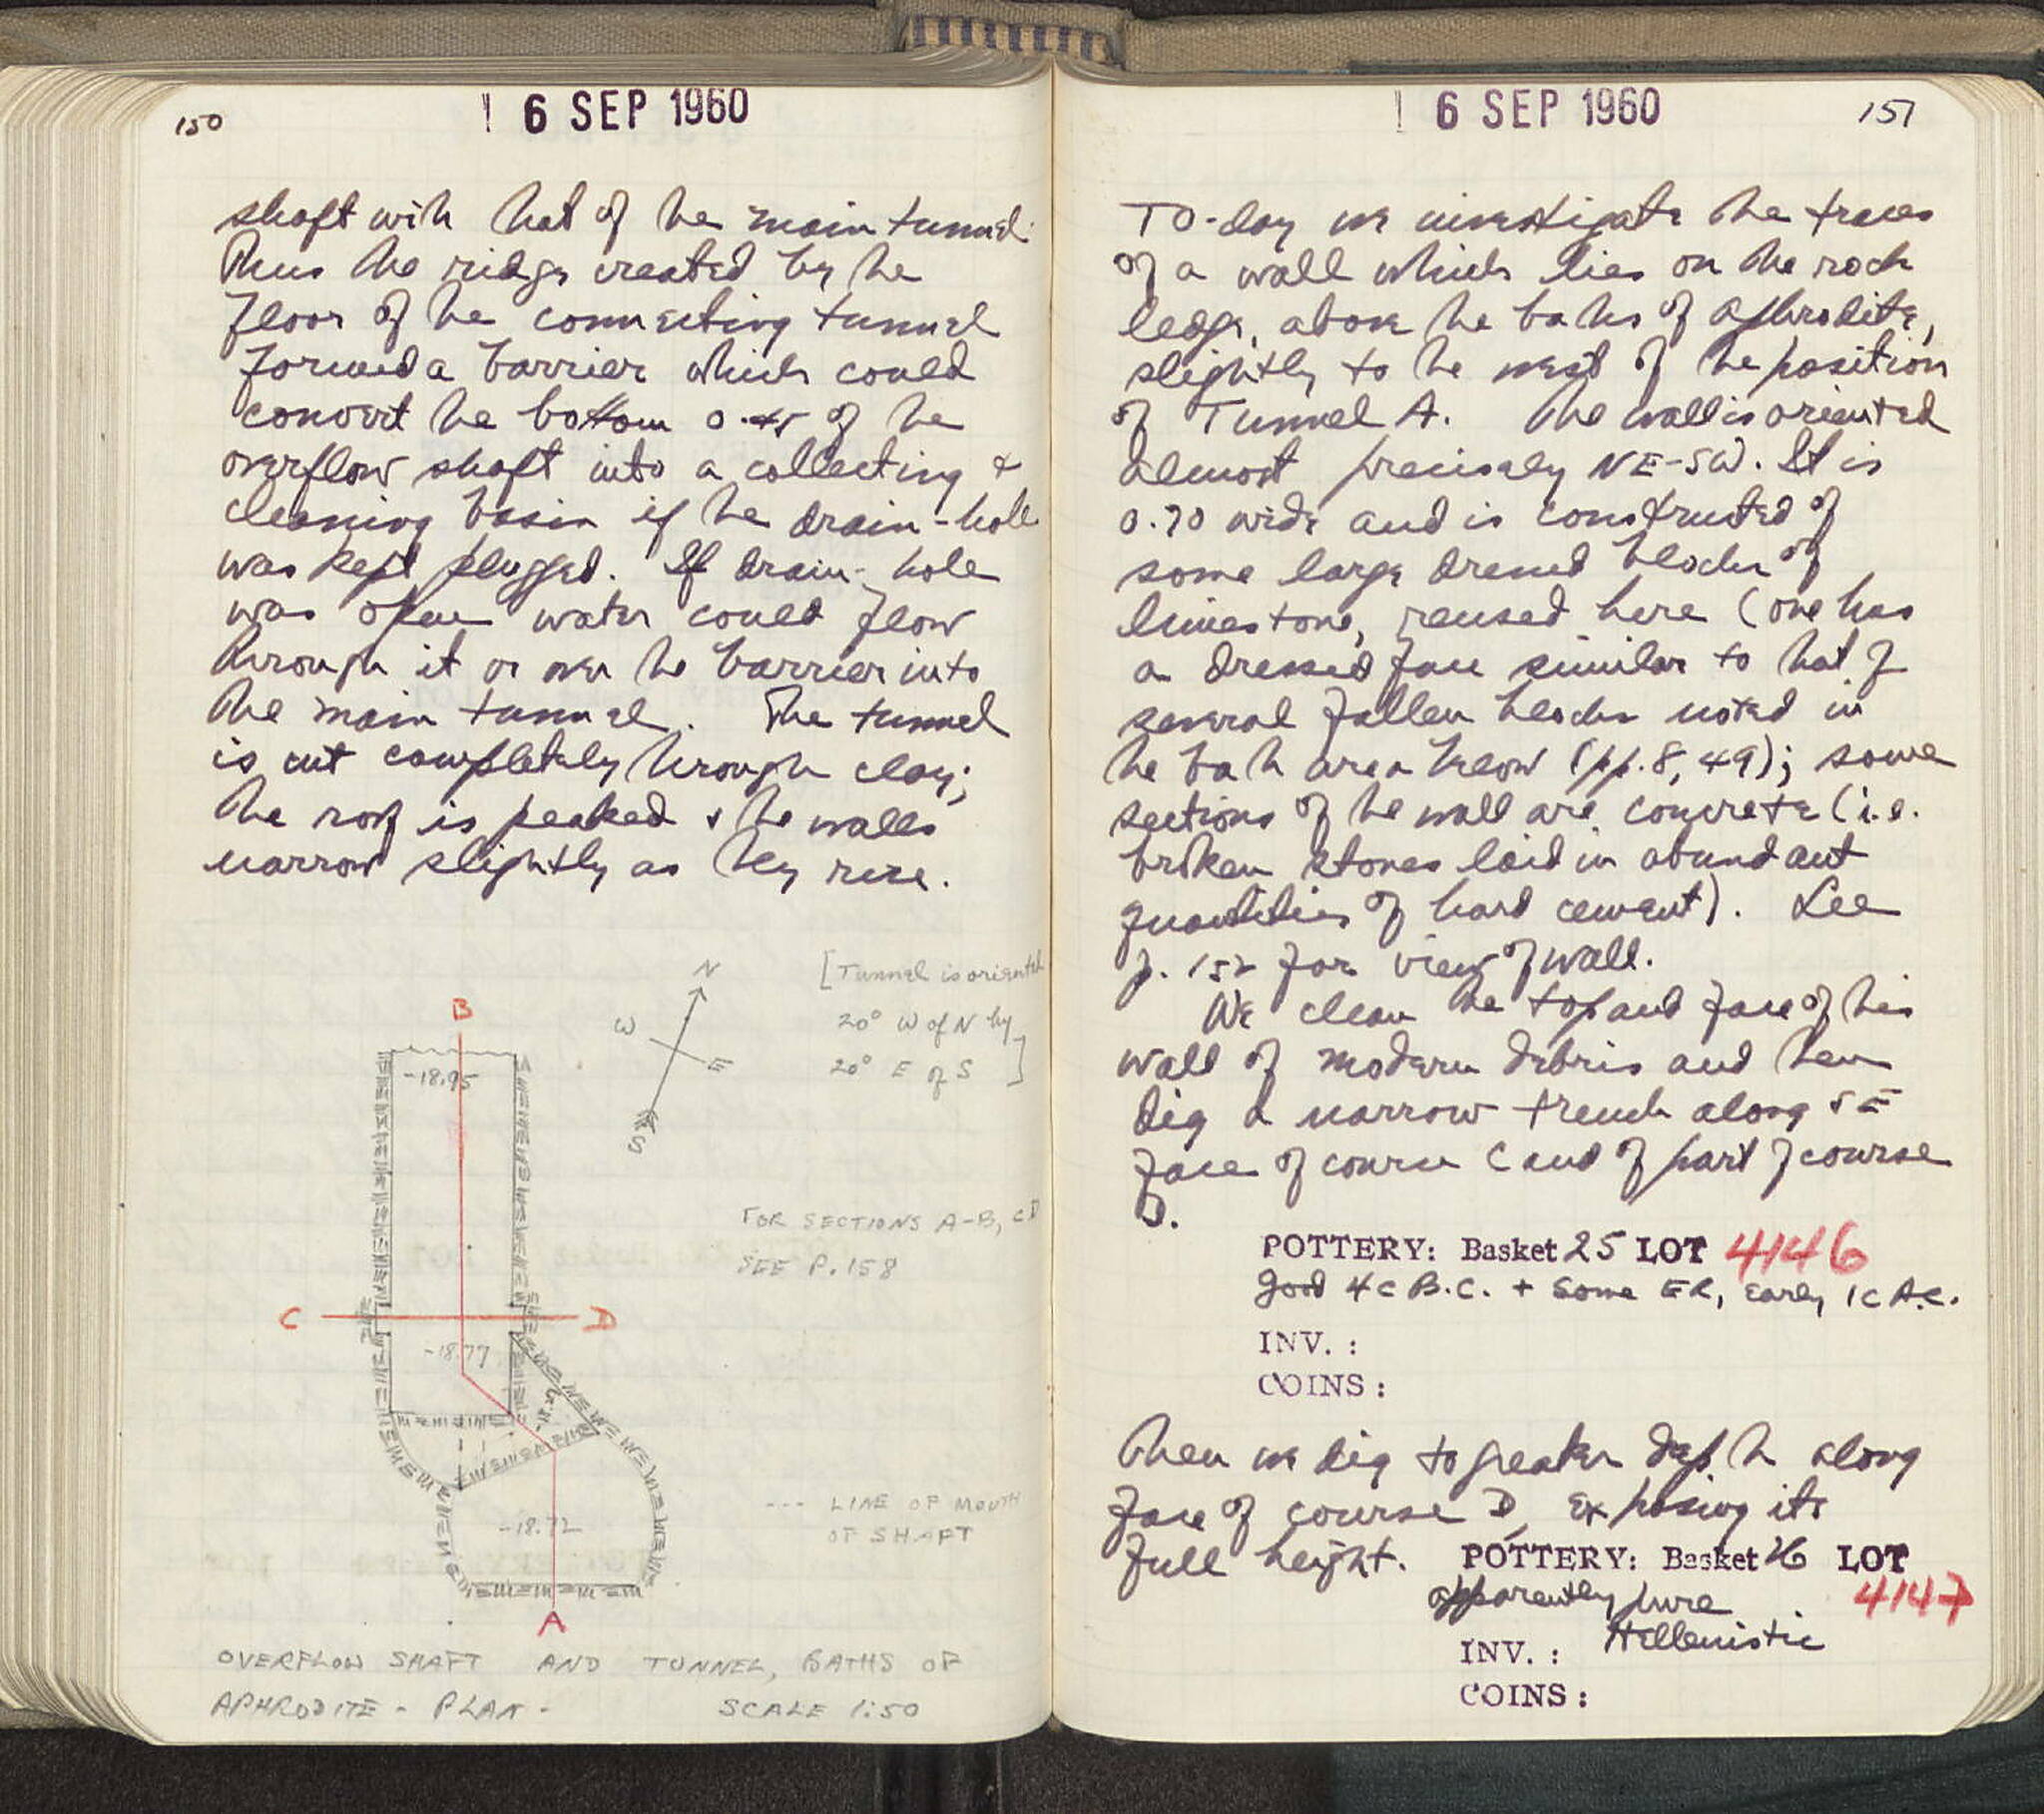 150
! 6 SEP 1960
shaft with that of the main tunnel.
Thus the ridge created by the
floor of the connecting tunnel
formed a barrier which could
convert the bottom 0.45 of the
overflow shaft into a collecting +
cleaning basin if the drain-hole
was kept plugged. If drain-hole
was open water could flow
through it or over the barrier into
the main tunnel. The tunnel
is cut completely through clay;
the roof is peaked & the walls
narrow slightly as they rise.
[Tunnel is oriented
20° W of N by
20° E of S]
N
W
E
S
B
-18.95
FOR SECTIONS A-B, CD
SEE P. 158
C
D
-18.77
--- LINE OF MOUTH
OF SHAFT
-18.72
A
OVERFLOW SHAFT AND TUNNEL, BATHS OF
APHRODITE - PLAN - SCALE 1:50
! 6 SEP 1960
151
To-day we investigate the traces
of a wall which lies on the rock
ledge, above the baths of Aphrodite,
slightly to the west of the position
of Tunnel A. The wall is oriented
almost precisely NE-SW. It is
0.70 wide and is constructed of
some large dressed blocks of
limestone, reused here (one has
a dressed face similar to that of
several fallen blocks noted in
the bath area below (pp. 8, 49); some
sections of the wall are concrete (i.e.
broken stones laid in abundant
quantities of hard cement). See
p. 152 for view of wall.
We clean the top and face of this
wall of modern debris and then
dig a narrow trench along SE
face of course C and of part of course
D.
POTTERY: Basket 25 LOT 4146
Good 4c B.C. + some ER, early 1c A.C.
INV. :
COINS :
Then we dig to greater depth along
face of course D, exposing its
full height.
POTTERY: Basket 26 LOT
4147
apparently pure
Hellenistic
INV. :
COINS :